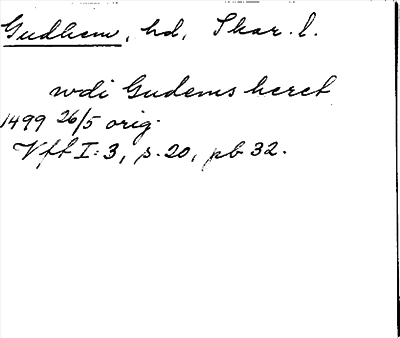 Gudhem, hd, Skar. l.
wdi Gudems heret
1499 26/5 orig.
Vff I:3, s. 20, pb 32.